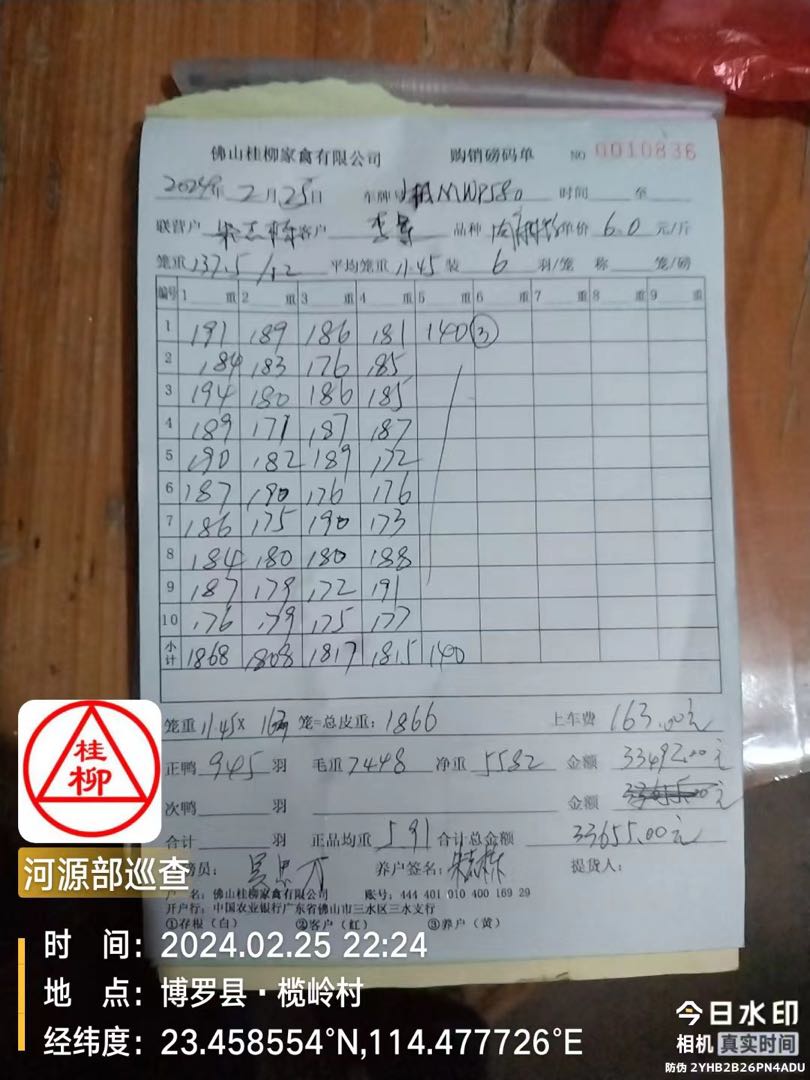 佛山桂柳家禽有限公司 购销磅码单 NO 0010836
2024年 2月 25日 车牌 MWP580 时间 至
联营户 客户 品种 单价 6.0 元/斤
笼重 137.5/12 平均笼重 11.45 装 6 羽/笼 称 笼/磅
编号 1 重 2 重 3 重 4 重 5 重 6 重 7 重 8 重 9 重
1 191 189 186 181 140 ③
2 184 183 176 185
3 194 180 186 185
4 189 171 187 187
5 190 182 189 172
6 187 190 176 176
7 186 175 190 173
8 184 180 180 188
9 187 179 172 191
10 176 179 175 177
小计 1868 1808 1817 1815 140
笼重 11.45 × 163 笼=总皮重: 1866 上车费 163.00元
正鸭 945 羽 毛重 7448 净重 5582 金额 33492.00元
次鸭 羽 金额
合计 羽 正品均重 5.91 合计总金额 33655.00元
务员: 养户签名: 提货人:
户 名: 佛山桂柳家禽有限公司 账号: 444 401 010 400 169 29
开户行: 中国农业银行广东省佛山市三水区三水支行
①存根(白) ②客户(红) ③养户(黄)
桂柳
河源部巡查
时 间: 2024.02.25 22:24
地 点: 博罗县·榄岭村
经纬度: 23.458554°N,114.477726°E
今日水印
相机 真实时间
防伪 2YHB2B26PN4ADU